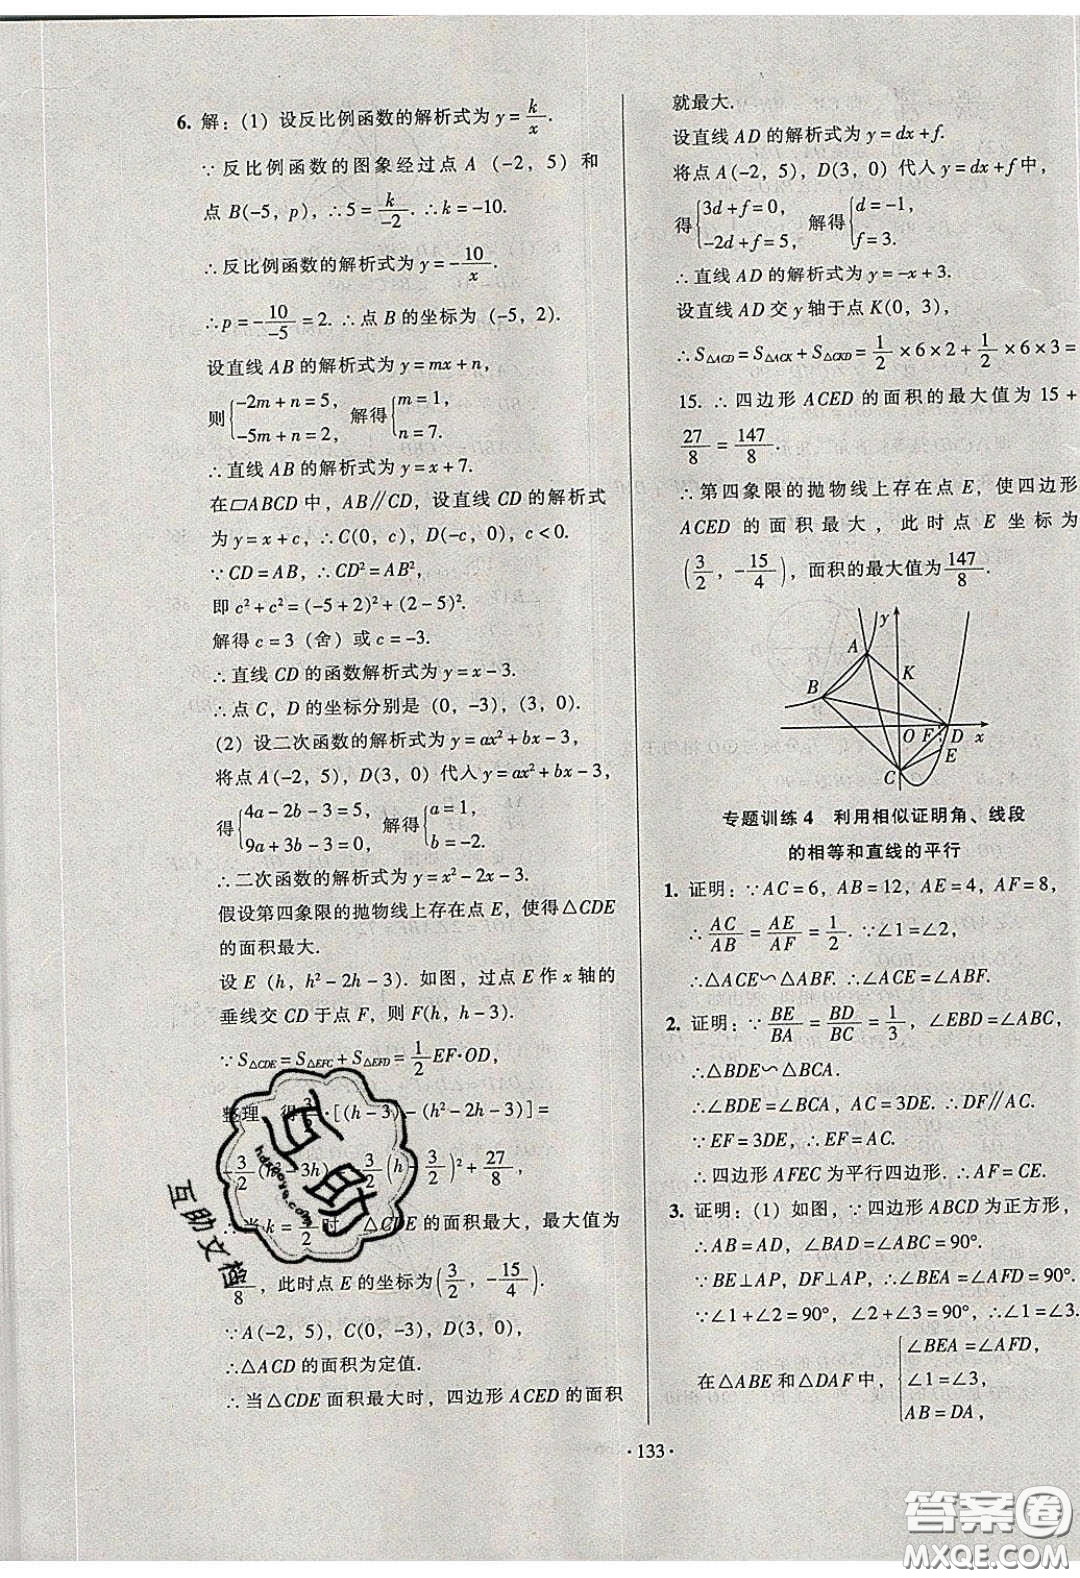 6. 解：(1) 设反比例函数的解析式为 y = k/x.
∵ 反比例函数的图象经过点 A (-2, 5) 和
点 B(-5, p), ∴ 5 = k/-2. ∴ k = -10.
∴ 反比例函数的解析式为 y = -10/x.
∴ p = -10/-5 = 2. ∴ 点 B 的坐标为 (-5, 2).
设直线 AB 的解析式为 y = mx + n,
则 {-2m + n = 5, -5m + n = 2, 解得 {m = 1, n = 7.
∴ 直线 AB 的解析式为 y = x + 7.
在 ▱ABCD 中, AB∥CD, 设直线 CD 的解析式
为 y = x + c, ∴ C(0, c), D(-c, 0), c < 0.
∵ CD = AB, ∴ CD² = AB²,
即 c² + c² = (-5 + 2)² + (2 - 5)².
解得 c = 3 (舍) 或 c = -3.
∴ 直线 CD 的函数解析式为 y = x - 3.
∴ 点 C, D 的坐标分别是 (0, -3), (3, 0).
(2) 设二次函数的解析式为 y = ax² + bx - 3,
将点 A(-2, 5), D(3, 0) 代人 y = ax² + bx - 3,
得 {4a - 2b - 3 = 5, 9a + 3b - 3 = 0, 解得 {a = 1, b = -2.
∴ 二次函数的解析式为 y = x² - 2x - 3.
假设第四象限的抛物线上存在点 E, 使得 △CDE
的面积最大.
设 E (h, h² - 2h - 3). 如图, 过点 E 作 x 轴的
垂线交 CD 于点 F, 则 F(h, h - 3).
∵ S△CDE = S△EFC + S△EFD = 1/2 EF·OD,
整理 得 ·[(h - 3) - (h² - 2h - 3)] =
-3/2 (h - 3h) 3/2 (h - 3/2)² + 27/8,
∴ 当 k = /2 时 △CDE 的面积最大, 最大值为
/8, 此时点 E 的坐标为 (3/2, -15/4).
∵ A(-2, 5), C(0, -3), D(3, 0),
∴ △ACD 的面积为定值.
∴ 当 △CDE 面积最大时, 四边形 ACED 的面积
就最大.
设直线 AD 的解析式为 y = dx + f.
将点 A(-2, 5), D(3, 0) 代人 y = dx + f 中,
得 {3d + f = 0, -2d + f = 5, 解得 {d = -1, f = 3.
∴ 直线 AD 的解析式为 y = -x + 3.
设直线 AD 交 y 轴于点 K(0, 3),
∴ S△ACD = S△ACK + S△CKD = 1/2 × 6 × 2 + 1/2 × 6 × 3 =
15. ∴ 四边形 ACED 的面积的最大值为 15 +
27/8 = 147/8.
∴ 第四象限的抛物线上存在点 E, 使四边形
ACED 的面积最大, 此时点 E 坐标为
(3/2, -15/4), 面积的最大值为 147/8.
y
A
K
B
O F D x
E
C
专题训练 4 利用相似证明角、线段
的相等和直线的平行
1. 证明：∵ AC = 6, AB = 12, AE = 4, AF = 8,
∴ AC/AB = AE/AF = 1/2. ∵ ∠1 = ∠2,
∴ △ACE∽△ABF. ∴ ∠ACE = ∠ABF.
2. 证明：∵ BE/BA = BD/BC = 1/3, ∠EBD = ∠ABC,
∴ △BDE∽△BCA.
∴ ∠BDE = ∠BCA, AC = 3DE. ∴ DF∥AC.
∵ EF = 3DE, ∴ EF = AC.
∴ 四边形 AFEC 为平行四边形. ∴ AF = CE.
3. 证明：(1) 如图, ∵ 四边形 ABCD 为正方形,
∴ AB = AD, ∠BAD = ∠ABC = 90°.
∵ BE⊥AP, DF⊥AP, ∴ ∠BEA = ∠AFD = 90°.
∵ ∠1 + ∠2 = 90°, ∠2 + ∠3 = 90°, ∴ ∠1 = ∠3.
在 △ABE 和 △DAF 中, {∠BEA = ∠AFD, ∠1 = ∠3, AB = DA,
· 133 ·
互助
hdzuoye.com
互助文档
答案圈
MXQE.COM